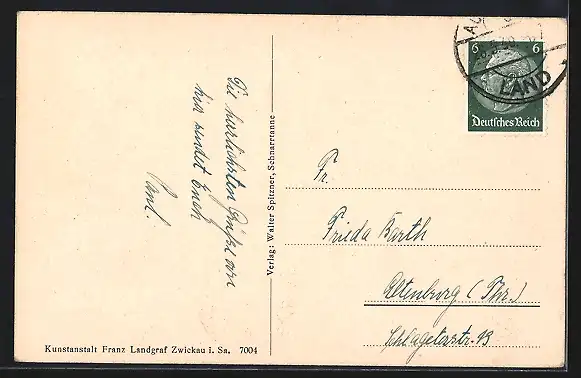 Die herzlichsten Grüße von
hier sendet Euch
Paul.
Verlag: Walter Spitzner, Schnarrtanne
6 6
Deutsches Reich
LAND
Fr.
Frieda Barth
Altenburg (Thr.)
Schlageterstr. 13
Kunstanstalt Franz Landgraf Zwickau i. Sa. 7004